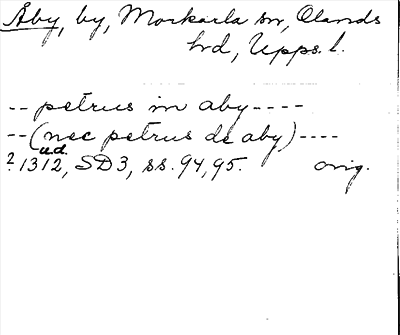 Åby, by, Morkarla sn, Olands
hrd, Upps. l.
-- petrus in aby ----
-- (nec petrus de aby) ----
u.d.
? 1312, SD3, ss. 94, 95. orig.